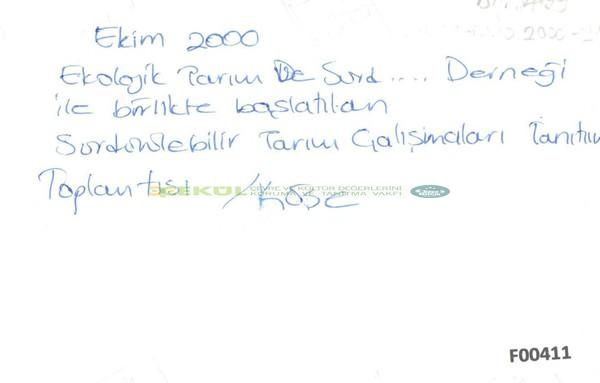 Ekim 2000
Ekolojik Tarım Ve Surd.... Derneği
ile birlikte başlatılan
Sürdürülebilir Tarım Çalışmaları Tanıtım
Toplantısı /KÖSE
ÇEKÜL ÇEVRE VE KÜLTÜR DEĞERLERİNİ
KORUMA VE TANITMA VAKFI
F00411